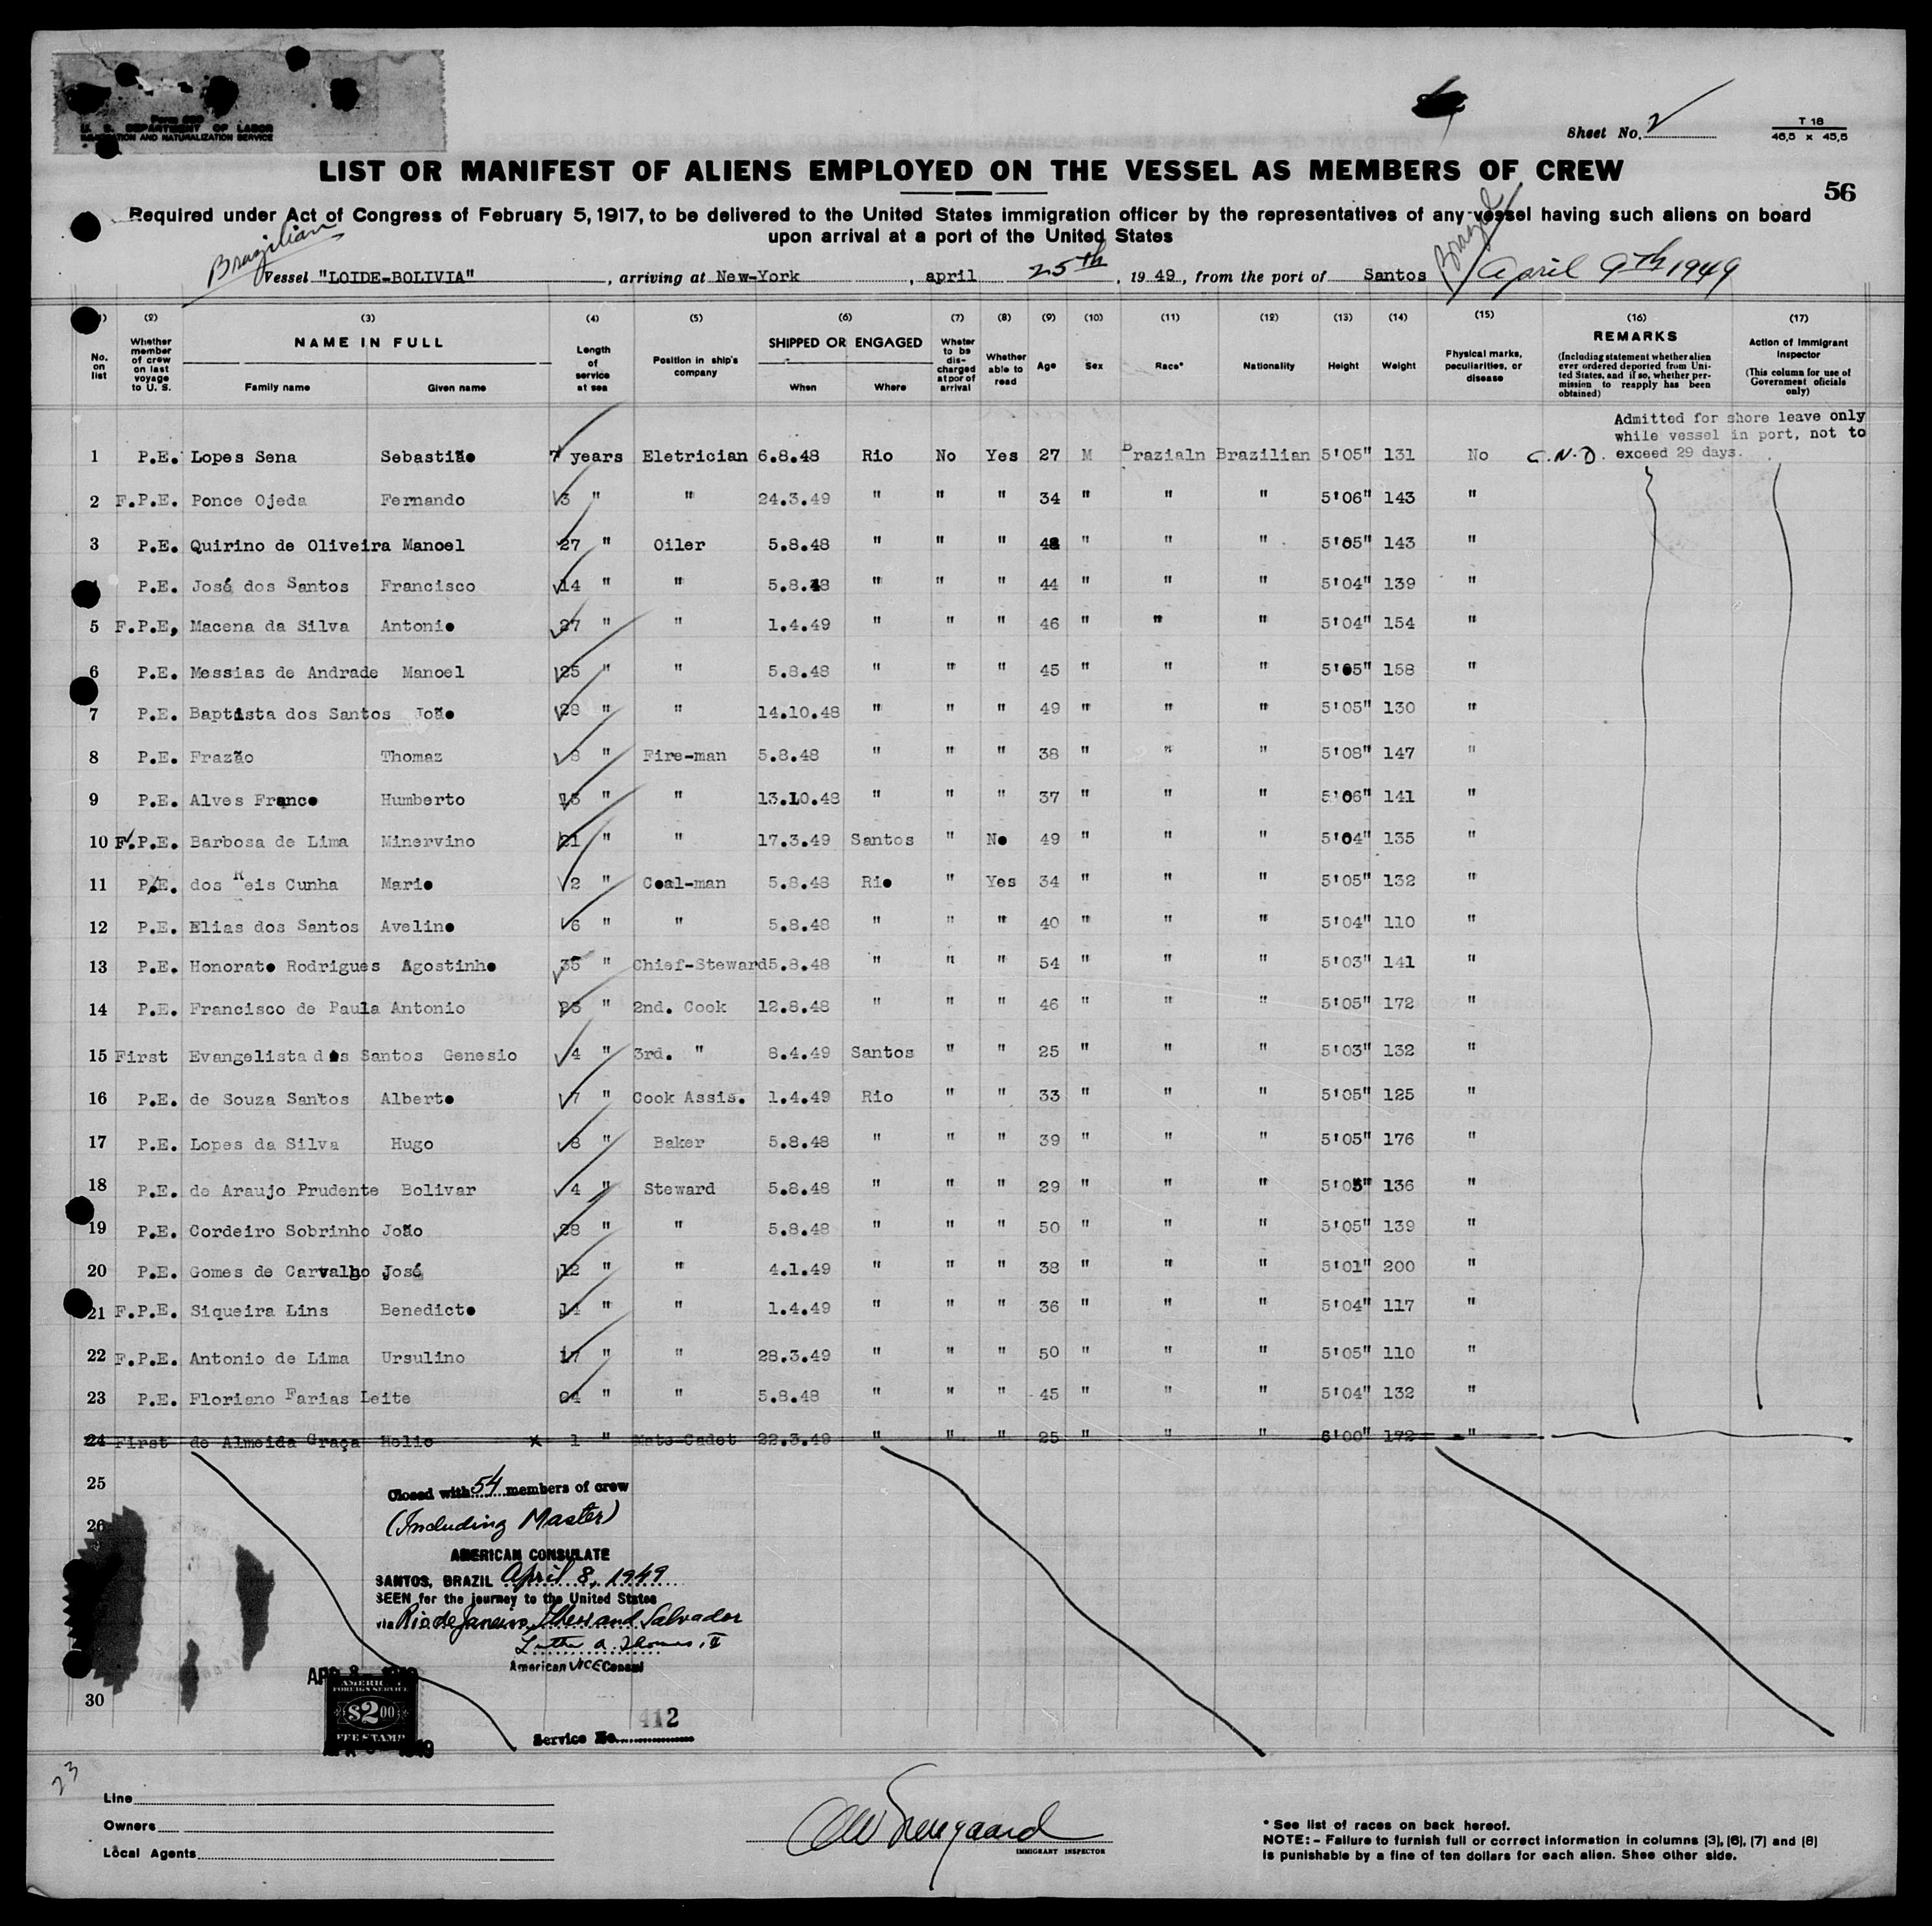 Form 689
U. S. DEPARTMENT OF LABOR
IMMIGRATION AND NATURALIZATION SERVICE
Sheet No. 2
T 18
46,5 x 45,5
LIST OR MANIFEST OF ALIENS EMPLOYED ON THE VESSEL AS MEMBERS OF CREW
56
Required under Act of Congress of February 5, 1917, to be delivered to the United States immigration officer by the representatives of any vessel having such aliens on board
upon arrival at a port of the United States
Brazilian
Brazil
Vessel "LOIDE-BOLIVIA", arriving at New-York, april 25th, 1949, from the port of Santos April 9th 1949
(2) (3) (4) (5) (6) (7) (8) (9) (10) (11) (12) (13) (14) (15) (16) (17)
No. on list
Whether member of crew on last voyage to U. S.
NAME IN FULL
Family name Given name
Length of service at sea
Position in ship's company
SHIPPED OR ENGAGED
When Where
Wheter to be discharged at por of arrival
Whether able to read
Age Sex Race* Nationality Height Weight
Physical marks, peculiarities, or disease
REMARKS
(Including statement whether alien ever ordered deported from United States, and if so, whether permission to reapply has been obtained)
Action of Immigrant Inspector
(This column for use of Government oficials only)
Admitted for shore leave only
while vessel in port, not to
exceed 29 days.
1 P.E. Lopes Sena Sebastião 7 years Eletrician 6.8.48 Rio No Yes 27 M Brazialn Brazilian 5'05" 131 No C.N.D.
2 F.P.E. Ponce Ojeda Fernando 3 " " 24.3.49 " " " 34 " " " 5'06" 143 "
3 P.E. Quirino de Oliveira Manoel 27 " Oiler 5.8.48 " " " 48 " " " 5'05" 143 "
P.E. José dos Santos Francisco 14 " " 5.8.48 " " " 44 " " " 5'04" 139 "
5 F.P.E, Macena da Silva Antonio 27 " " 1.4.49 " " " 46 " " " 5'04" 154 "
6 P.E. Messias de Andrade Manoel 25 " " 5.8.48 " " " 45 " " " 5'05" 158 "
7 P.E. Baptista dos Santos João 28 " " 14.10.48 " " " 49 " " " 5'05" 130 "
8 P.E. Frazão Thomaz 8 " Fire-man 5.8.48 " " " 38 " " " 5'08" 147 "
9 P.E. Alves Franco Humberto 13 " " 13.10.48 " " " 37 " " " 5'06" 141 "
10 F.P.E. Barbosa de Lima Minervino 21 " " 17.3.49 Santos " No 49 " " " 5'04" 135 "
11 P.E. dos Reis Cunha Mario 2 " Coal-man 5.8.48 Rio " Yes 34 " " " 5'05" 132 "
12 P.E. Elias dos Santos Avelino 6 " " 5.8.48 " " " 40 " " " 5'04" 110 "
13 P.E. Honorato Rodrigues Agostinho 35 " Chief-Steward 5.8.48 " " " 54 " " " 5'03" 141 "
14 P.E. Francisco de Paula Antonio 23 " 2nd. Cook 12.8.48 " " " 46 " " " 5'05" 172 "
15 First Evangelista dos Santos Genesio 4 " 3rd. " 8.4.49 Santos " " 25 " " " 5'03" 132 "
16 P.E. de Souza Santos Alberto 7 " Cook Assis. 1.4.49 Rio " " 33 " " " 5'05" 125 "
17 P.E. Lopes da Silva Hugo 8 " Baker 5.8.48 " " " 39 " " " 5'05" 176 "
18 P.E. de Araujo Prudente Bolivar 4 " Steward 5.8.48 " " " 29 " " " 5'05" 136 "
19 P.E. Cordeiro Sobrinho João 28 " " 5.8.48 " " " 50 " " " 5'05" 139 "
20 P.E. Gomes de Carvalho José 12 " " 4.1.49 " " " 38 " " " 5'01" 200 "
21 F.P.E. Siqueira Lins Benedicto 14 " " 1.4.49 " " " 36 " " " 5'04" 117 "
22 F.P.E. Antonio de Lima Ursulino 17 " " 28.3.49 " " " 50 " " " 5'05" 110 "
23 P.E. Floriano Farias Leite 04 " " 5.8.48 " " " 45 " " " 5'04" 132 "
24 First de Almeida Graça Helio x 1 " Mate-Cadet 22.3.49 " " " 25 " " " 6'00" 172 "
25
26
30
Closed with 54 members of crew
(Including Master)
AMERICAN CONSULATE
SANTOS, BRAZIL April 8, 1949
SEEN for the journey to the United States
via Rio de Janeiro, Ilheus and Salvador
Luther A. Thomas, II
American VICE Consul
APR 8 - 1949
AMERICAN
FOREIGN SERVICE
$2.00
FEE STAMP
Service No. 412
23
Line
Owners
Local Agents
IMMIGRANT INSPECTOR
* See list of races on back hereof.
NOTE:- Failure to furnish full or correct information in columns (3), (6), (7) and (8)
is punishable by a fine of ten dollars for each alien. Shee other side.